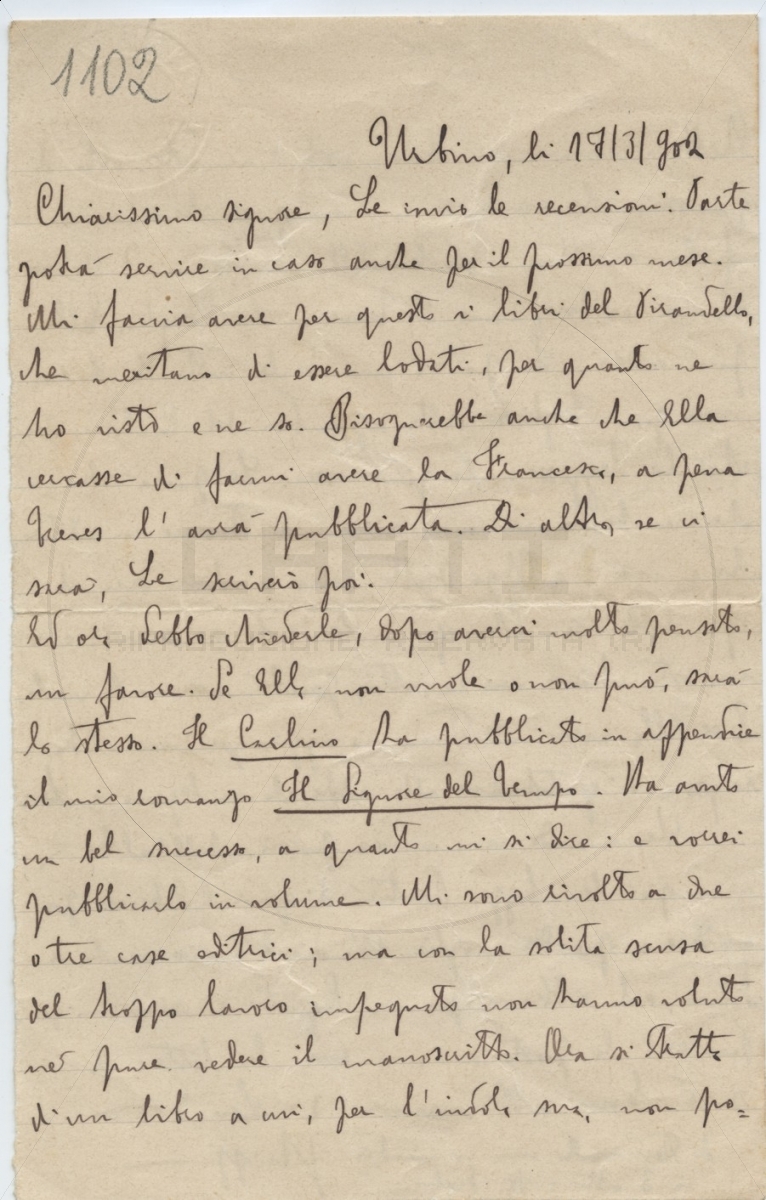 1102
Urbino, li 17/3/902
Chiarissimo signore, Le invio le recensioni. Parte
potrà servire in caso anche per il prossimo mese.
Mi faccia avere per questo i libri del Pirandello,
che meritano di essere lodati, per quanto ne
ho visto e ne so. Bisognerebbe anche che Ella
cercasse di farmi avere la Francesca, a pena
Treves l'avrà pubblicata. Di altro, se ci
sarà, Le scriverò poi.
Ed ora debbo chiederle, dopo averci molto pensato,
un favore. Se Ella non vuole o non può, sarà
lo stesso. Il Carlino ha pubblicato in appendice
il mio romanzo Il Signore del Tempo. Ha avuto
un bel successo, a quanto mi si dice: e vorrei
pubblicarlo in volume. Mi sono rivolto a due
o tre case editrici; ma con la solita scusa
del troppo lavoro impegnato non hanno voluto
né pure vedere il manoscritto. Ora si tratta
di un libro a cui, per l'indole sua, non po=